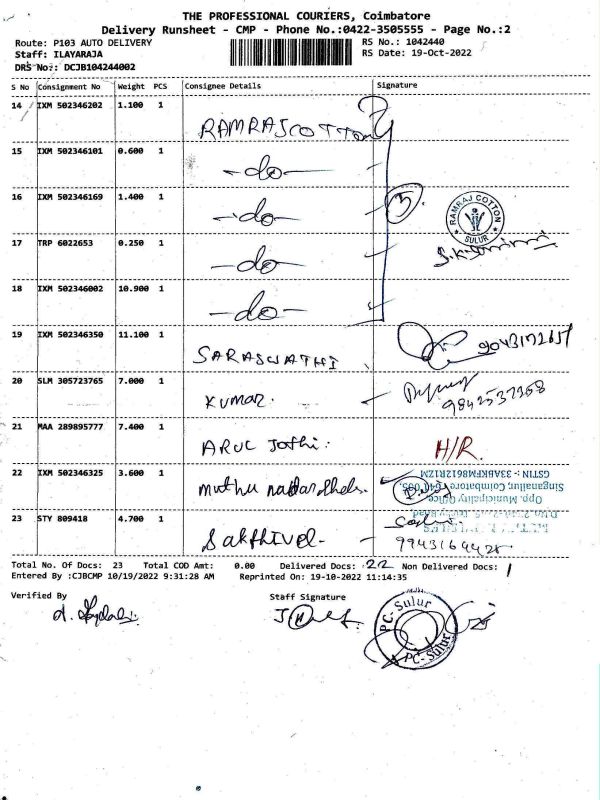 THE PROFESSIONAL COURIERS, Coimbatore
Delivery Runsheet - CMP - Phone No.:0422-3505555 - Page No.:2
Route: P103 AUTO DELIVERY RS No.: 1042440
Staff: ILAYARAJA RS Date: 19-Oct-2022
DRS No.: DCJB104244002
S No Consignment No Weight PCS Consignee Details Signature
14 IXM 502346202 1.100 1 RAMRAJCOTTON
15 IXM 502346101 0.600 1 -do-
16 IXM 502346169 1.400 1 -do- 5 RAMRAJ COTTON SULUR
17 TRP 6022653 0.250 1 -do-
18 IXM 502346002 10.900 1 -do-
19 IXM 502346350 11.100 1 SARASWATHI
20 SLM 305723765 7.000 1 Kumar. 9842537368
21 MAA 289895777 7.400 1 ARUL Jothi. H/R.
22 IXM 502346325 3.600 1 muthu
GSTIN :- 33ABKFM8612R1ZM
Singanallur, Coimbatore-641 005.
Opp. Municipality Office,
23 STY 809418 4.700 1 Sakthivel-
Total No. Of Docs: 23 Total COD Amt: 0.00 Delivered Docs: 22 Non Delivered Docs: 1
Entered By :CJBCMP 10/19/2022 9:31:28 AM Reprinted On: 19-10-2022 11:14:35
Verified By Staff Signature
PC-Sulur
PC-Sulur